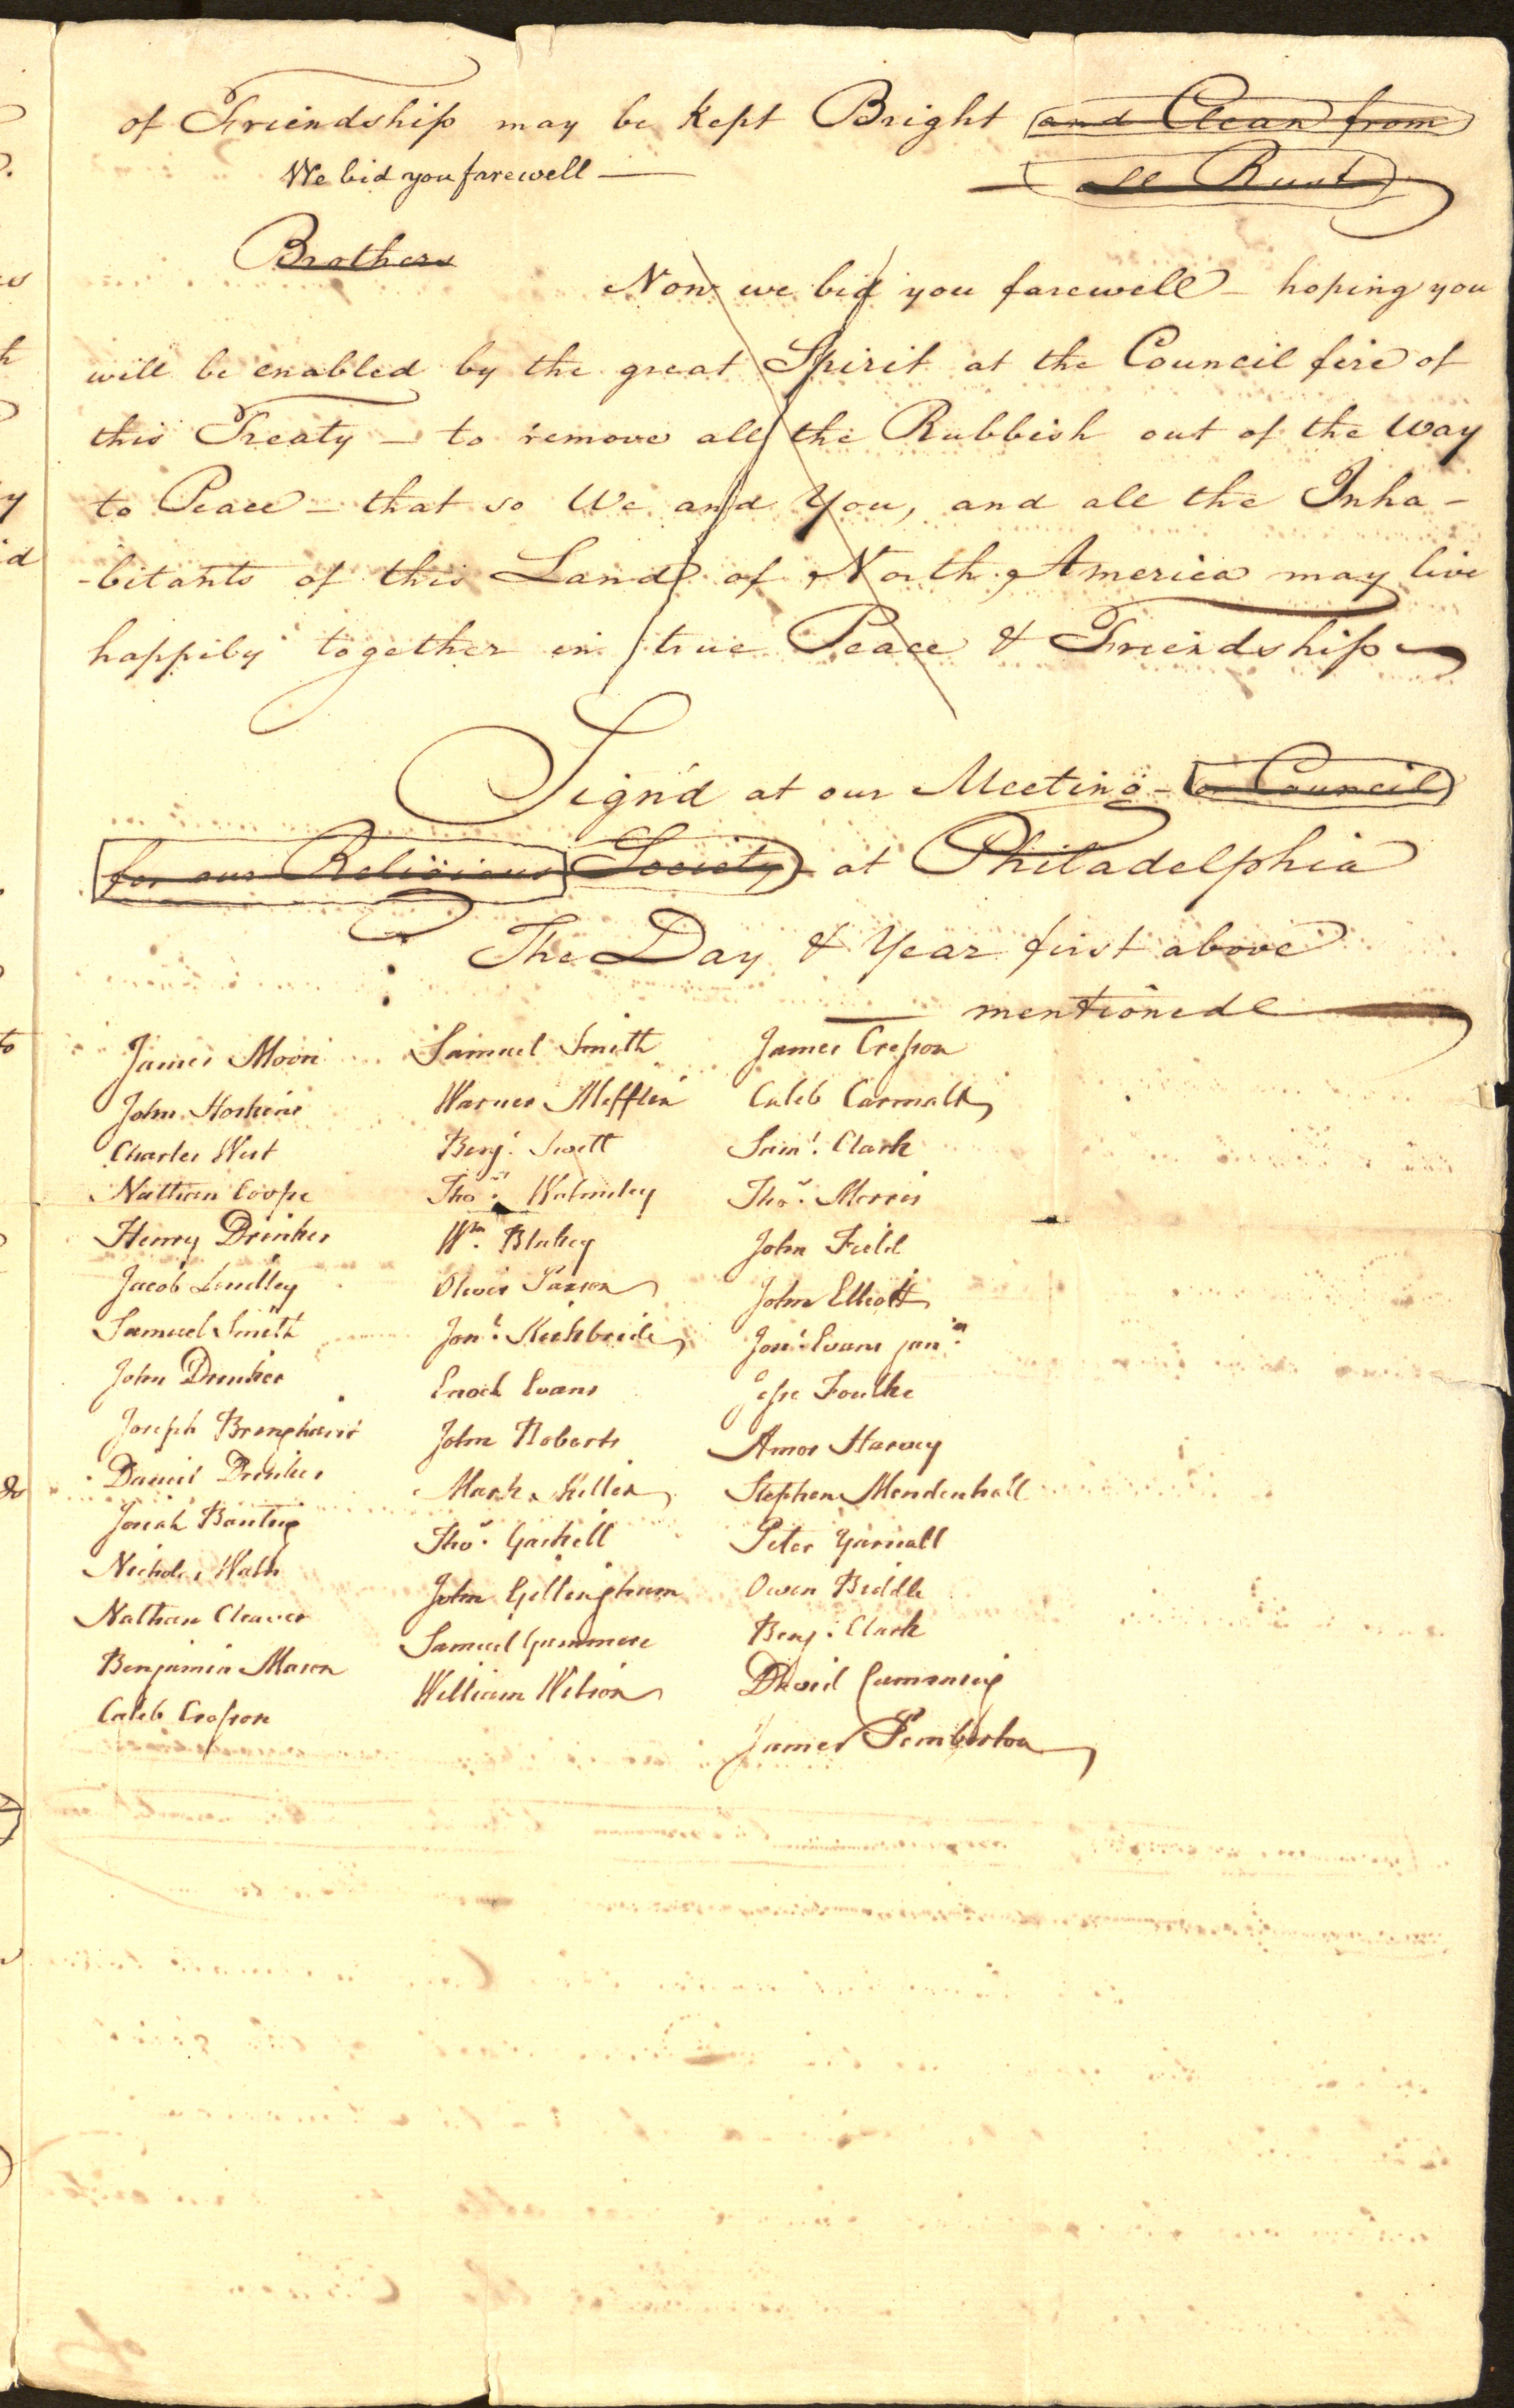 of Friendship may be kept Bright and Clean from
We bid you farewell —
all Rust
Brothers
Now we bid you farewell – hoping you
will be enabled by the great Spirit at the Council fire of
this Treaty – to remove all the Rubbish out of the way
to Peace – that so We and You, and all the Inha-
-bitants of this Land of North America may live
happily together in true Peace & Friendship
Sign'd at our Meeting – or Council
for our Religious Society at Philadelphia
The Day & Year first above
mentioned
James Moon Samuel Smith James Cresson
John Hoskins Warner Mifflin Caleb Carmalt
Charles West Benj.ⁿ Swett Sam.ˡ Clark
Nathan Coope Tho.ˢ Walmsley Tho.ˢ Morris
Henry Drinker Wᵐ. Blakey John Field
Jacob Lindley Oliver Paxson John Elliott
Samuel Smith Jon.ᵃ Kirkbride Jon.ᵃ Evans jun.ʳ
John Drinker Enoch Evans Jesse Foulke
Joseph Bringhurst John Roberts Amos Harvey
Daniel Drinker Mark Miller Stephen Mendenhall
Josiah Bunting Tho.ˢ Gaskill Peter Yarnall
Nicholas Waln John Gillingham Owen Biddle
Nathan Cleaver Samuel Gummere Benj. Clark
Benjamin Mason William Wilson David Cumming
Caleb Cresson James Pemberton